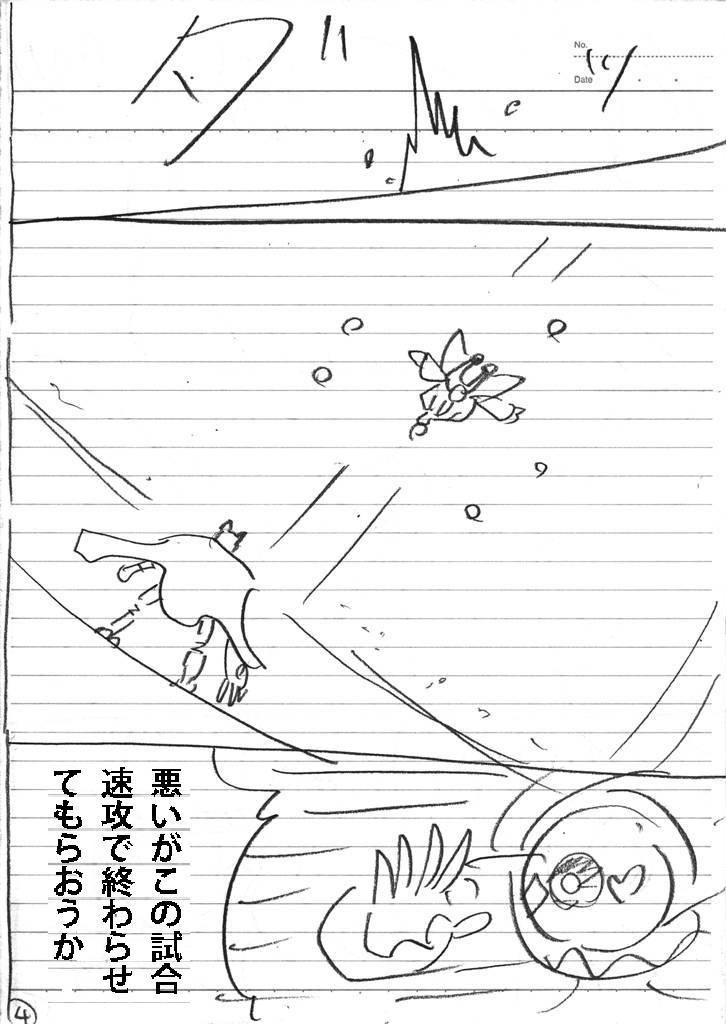 ダ
No.
Date
悪いがこの試合
速攻で終わらせ
てもらおうか
4